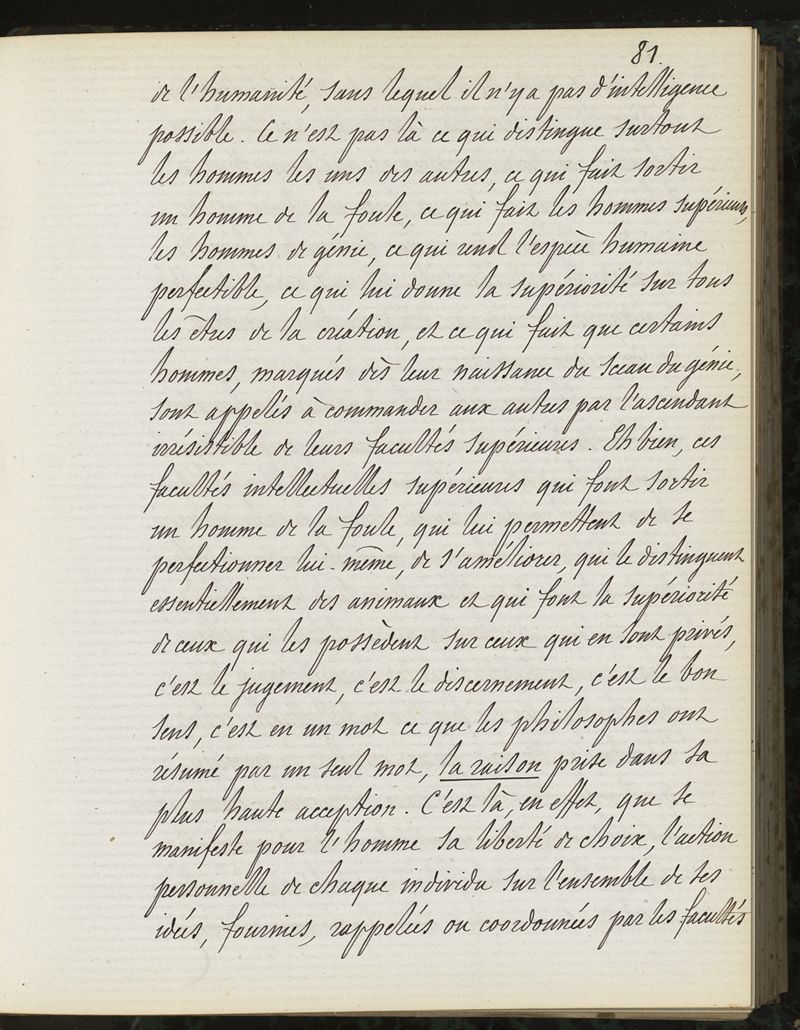 81.
de l'humanité, sans lequel il n'y a pas d'intelligence
possible. Ce n'est pas là ce qui distingue surtout
les hommes les uns des autres, ce qui fait sortir
un homme de la foule, ce qui fait les hommes supérieurs,
les hommes de génie, ce qui rend l'espèce humaine
perfectible, ce qui lui donne la supériorité sur tous
les êtres de la création, et ce qui fait que certains
hommes, marqués dès leur naissance du sceau du génie,
sont appelés à commander aux autres par l'ascendant
irrésistible de leurs facultés supérieures. Eh bien, ces
facultés intellectuelles supérieures qui font sortir
un homme de la foule, qui lui permettent de se
perfectionner lui-même, de s'améliorer, qui le distinguent
essentiellement des animaux et qui font la supériorité
de ceux qui les possèdent sur ceux qui en sont privés,
c'est le jugement, c'est le discernement, c'est le bon
sens, c'est en un mot ce que les philosophes ont
résumé par un seul mot, la raison prise dans sa
plus haute acception. C'est là, en effet, que se
manifeste pour l'homme sa liberté de choix, l'action
personnelle de chaque individu sur l'ensemble de ses
idées, fournies, rappelées ou coordonnées par les facultés